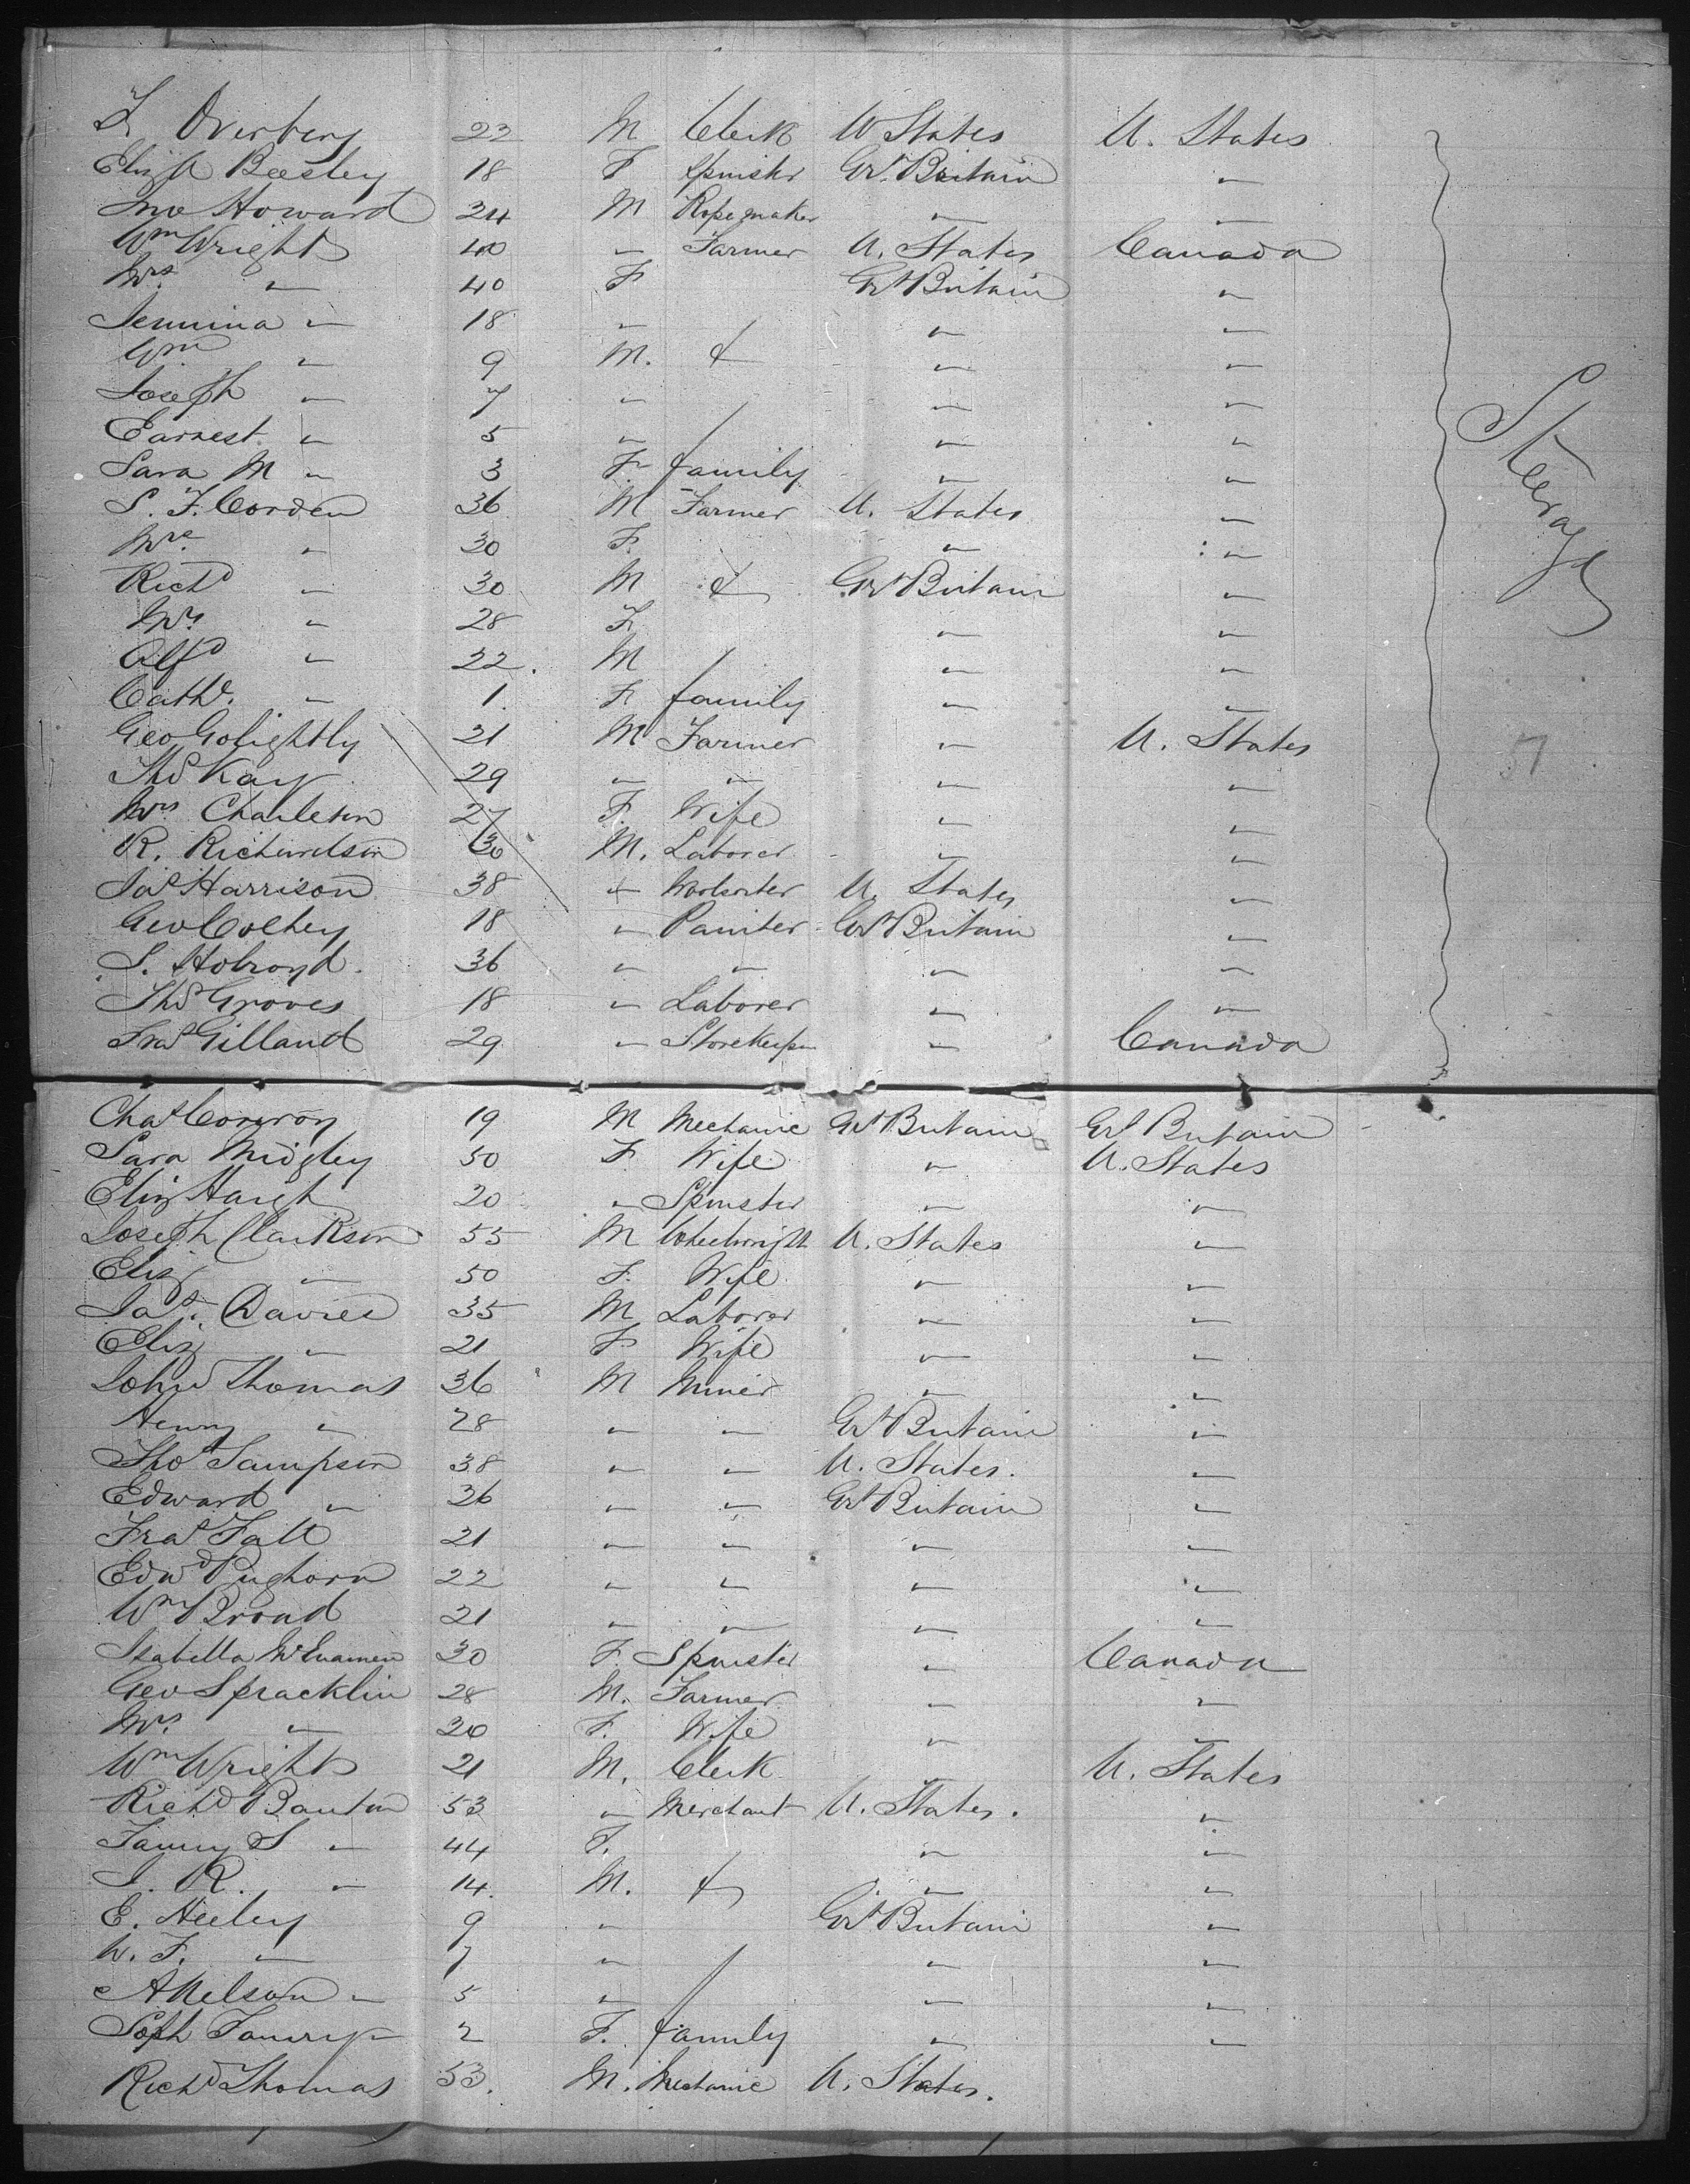 L Overbery 22 M Clerk U States U. States
Eliz A Beesley 18 F Spinster Gt. Britain "
Jno Howard 24 M Ropemaker " "
Wm Wright 40 " Farmer U. States Canada
Mrs. " 40 F Gt Britain "
Jemima " 18 " " "
Wm " 9 M. & " "
Joseph " 7 " " "
Earnest " 5 " " "
Sara M " 3 F. family " "
S. F. Corden 36 M Farmer U. States "
Mrs. " 30 F. " "
Richd " 30 M & Gt Britain "
Mrs. " 28 F. " "
Alfd " 22. M " "
Cathe. " 1. F. family " "
Geo Golightly 21 M Farmer " U. States
Thos Kay 29 " " " "
Mrs Charleton 27 F. Wife " "
R. Richardson 30 M. Laborer " "
Jas Harrison 38 " U. States "
Geo 18 " Painter Gt Britain "
S. Holroyd. 36 " " " "
Thos Groves 18 " Laborer " "
Fras Gilland 29 " Storekeeper " Canada
Steerage
57
Chas 19 M Mechanic Gt Britain Gt Britain
Sara Midgley 50 F. Wife " U. States
Eliz Haigh 20 " Spinster " "
Joseph Clarkson 55 M Wheelwright U. States "
Eliz " 50 F. Wife " "
Jas. Davies 35 M Laborer " "
Eliz " 21 F Wife " "
John Thomas 36 M Miner " "
Henry " 28 " " Gt Britain "
Thos Sampson 38 " " U. States. "
Edward " 36 " " Gt Britain "
Fras Fall 21 " " " "
Edwd Pughorn 22 " " " "
Wm Broad 21 " " " "
Isabella 30 F. Spinster " Canada
Geo Spracklin 28 M. Farmer " "
Mrs. " 20 F. Wife " "
Wm Wright 21 M. Clerk " U. States
Richd Banton 53 " Merchant U. States. "
Fanny S " 44 F. " "
J. R. " 14. M. & " "
E. Neeley 9 " Gt Britain "
W. F. " 7 " " "
A Nelson " 5 " " "
Soph 2 F. family " "
Richd Thomas 53. M. Mechanic U. States.